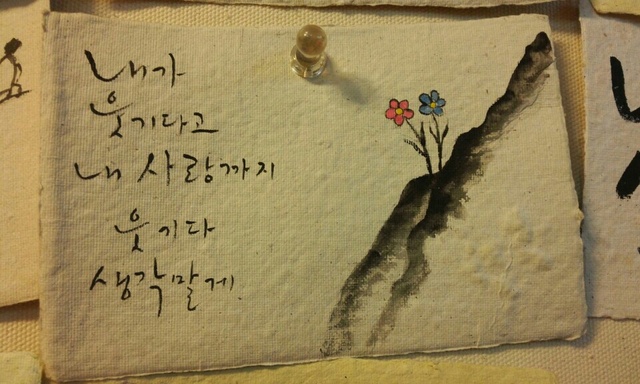 내가
웃기다고
내 사랑까지
웃기다
생각말게.